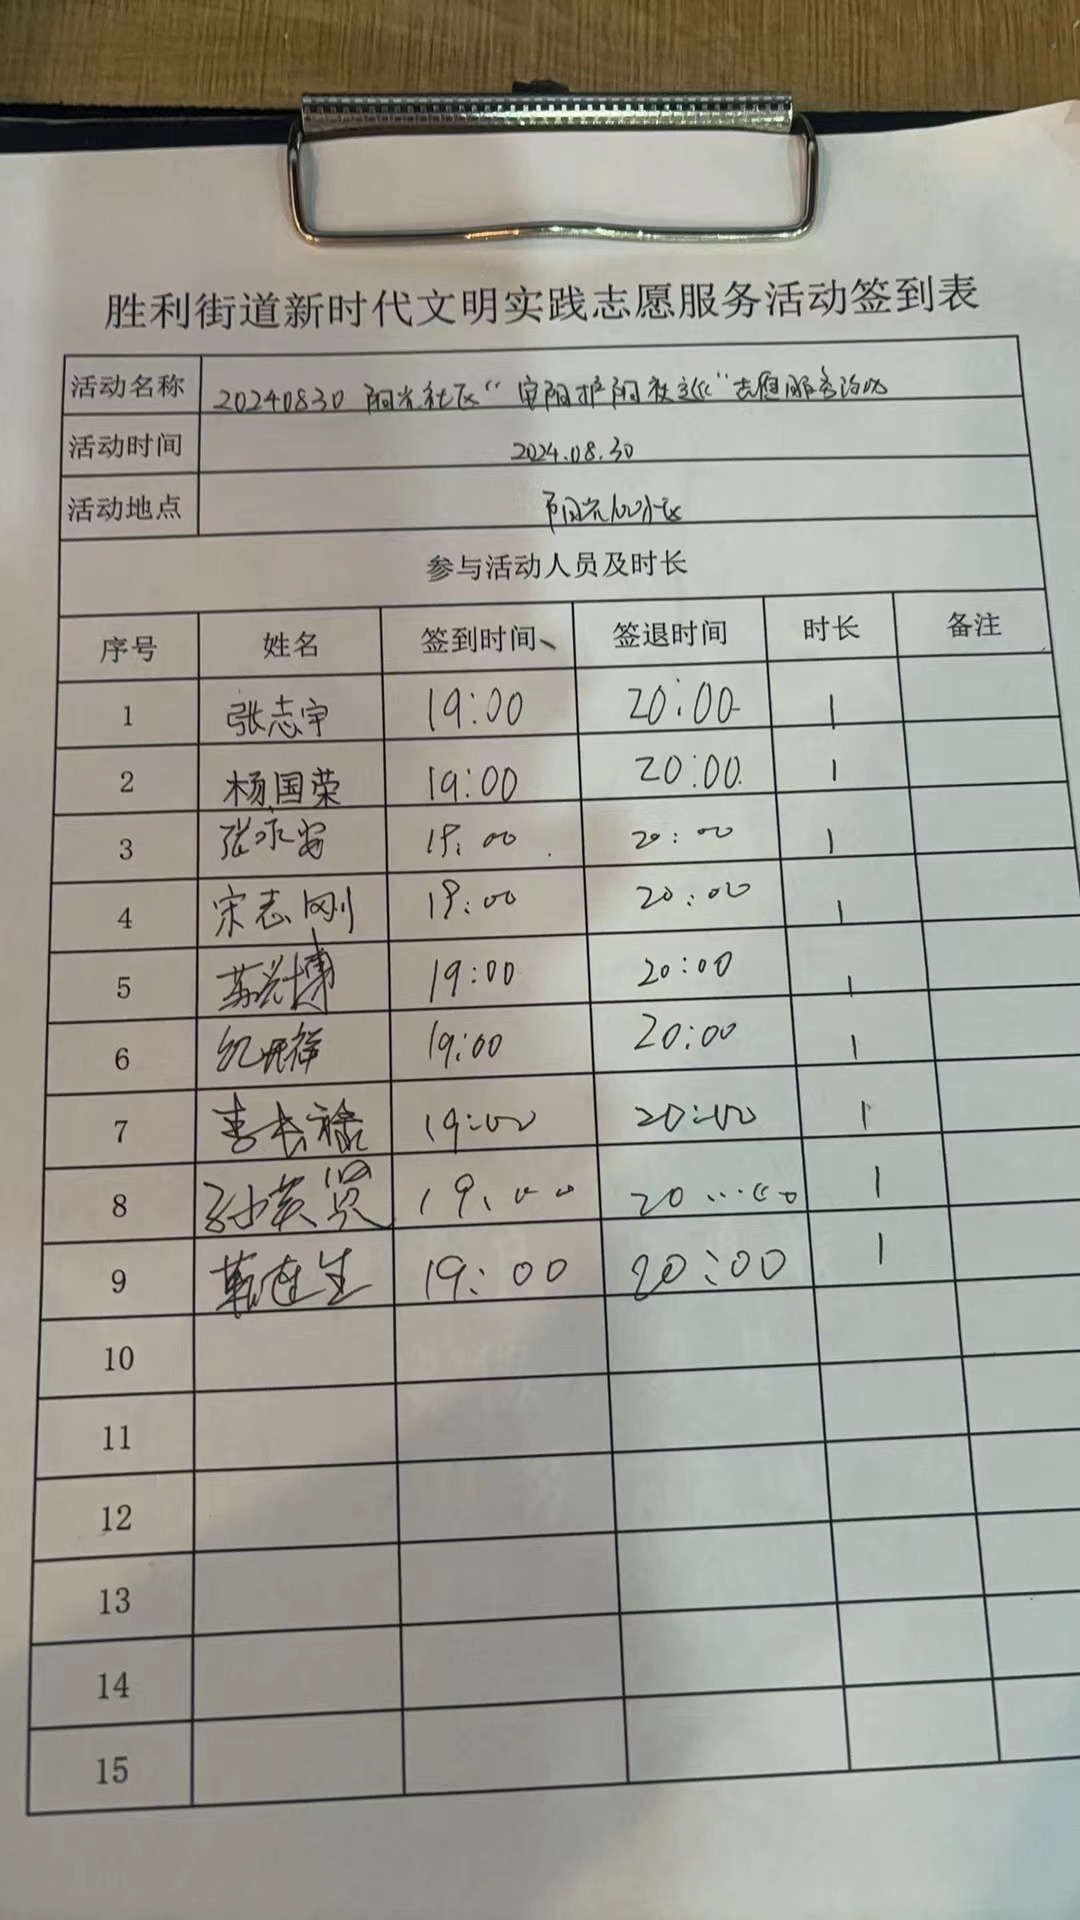 胜利街道新时代文明实践志愿服务活动签到表
活动名称 20240830 阳光社区“ 夜巡”志愿服务活动
活动时间 2024.08.30
活动地点 阳光 小区
参与活动人员及时长
序号 姓名 签到时间 签退时间 时长 备注
1 张志宇 19:00 20:00 1
2 杨国荣 19:00 20:00 1
3 张永安 19:00 20:00 1
4 宋志刚 19:00 20:00 1
5 苏兴博 19:00 20:00 1
6 纪开祥 19:00 20:00 1
7 李长禄 19:00 20:00 1
8 孙英贤 19:00 20:00 1
9 连生 19:00 20:00 1
10
11
12
13
14
15